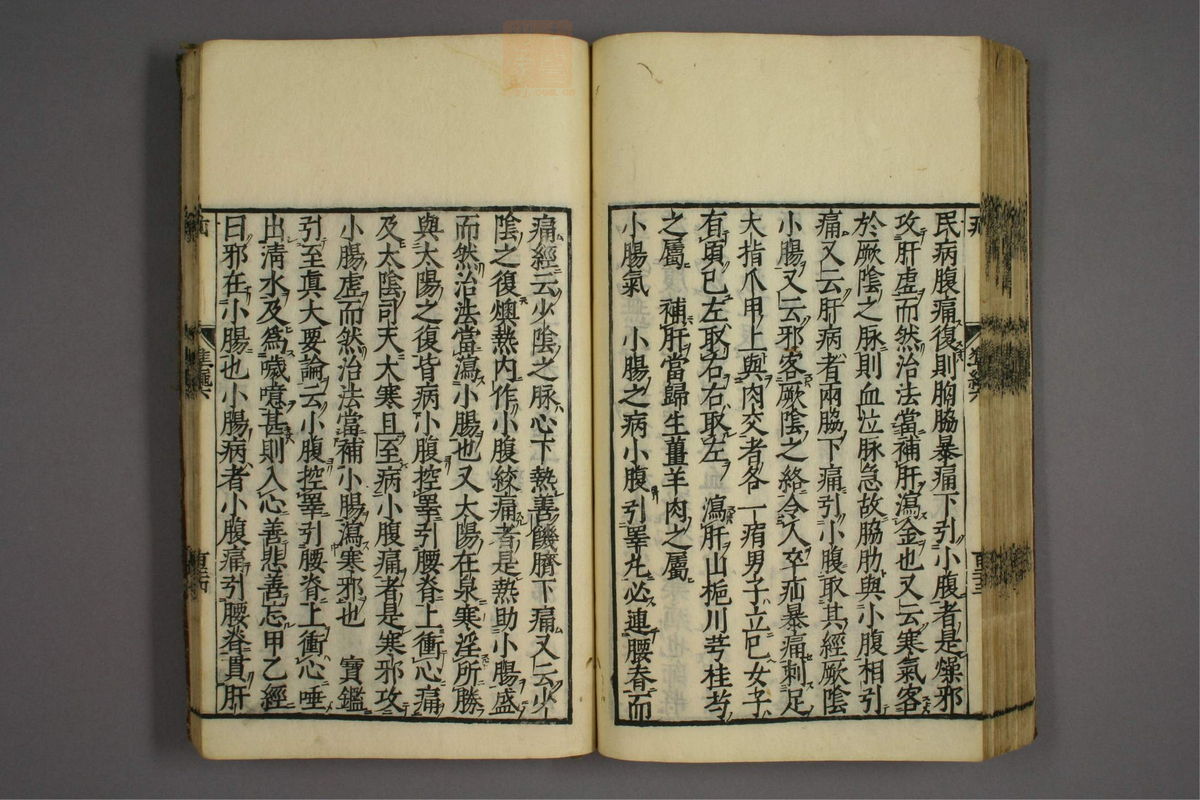 民病腹痛復則胸脇暴痛下引小腹者是燥邪
攻肝虛而然治法當補肝瀉金也又云寒氣客
於厥陰之脉則血泣脉急故脇肋與小腹相引
痛又云肝病者兩脇下痛引小腹取其經厥陰
小腸又云邪客厥陰之絡令人卒疝暴痛刺足
大指爪甲上與肉交者各一痏男子立已女子
有頃已左取右右取左　瀉肝山梔川芎桂芍
之屬　補肝當歸生薑羊肉之屬
小腸氣　小腸之病小腹引睾丸必連腰脊而
痛經云少陰之脉心下熱善饑臍下痛又云少
陰之復燠熱內作小腹絞痛者是熱助小腸盛
而然治法當瀉小腸也又太陽在泉寒淫所勝
與太陽之復皆病小腹控睾引腰脊上衝心痛
及太陰司天大寒且至病小腹痛者是寒邪攻
小腸虛而然治法當補小腸瀉寒邪也　寶鑑
引至眞大要論云小腹控睾引腰脊上衝心唾
出清水及爲噦噫甚則入心善悲善忘甲乙經
曰邪在小腸也小腸病者小腹痛引腰脊貫肝